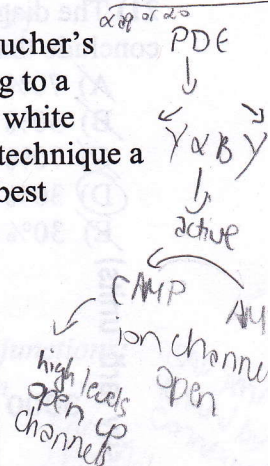 oucher's
g to a
white
technique a
best
PDE
γ α B γ
active
CAMP
AM
ion channe
open
high levels
open up
channels